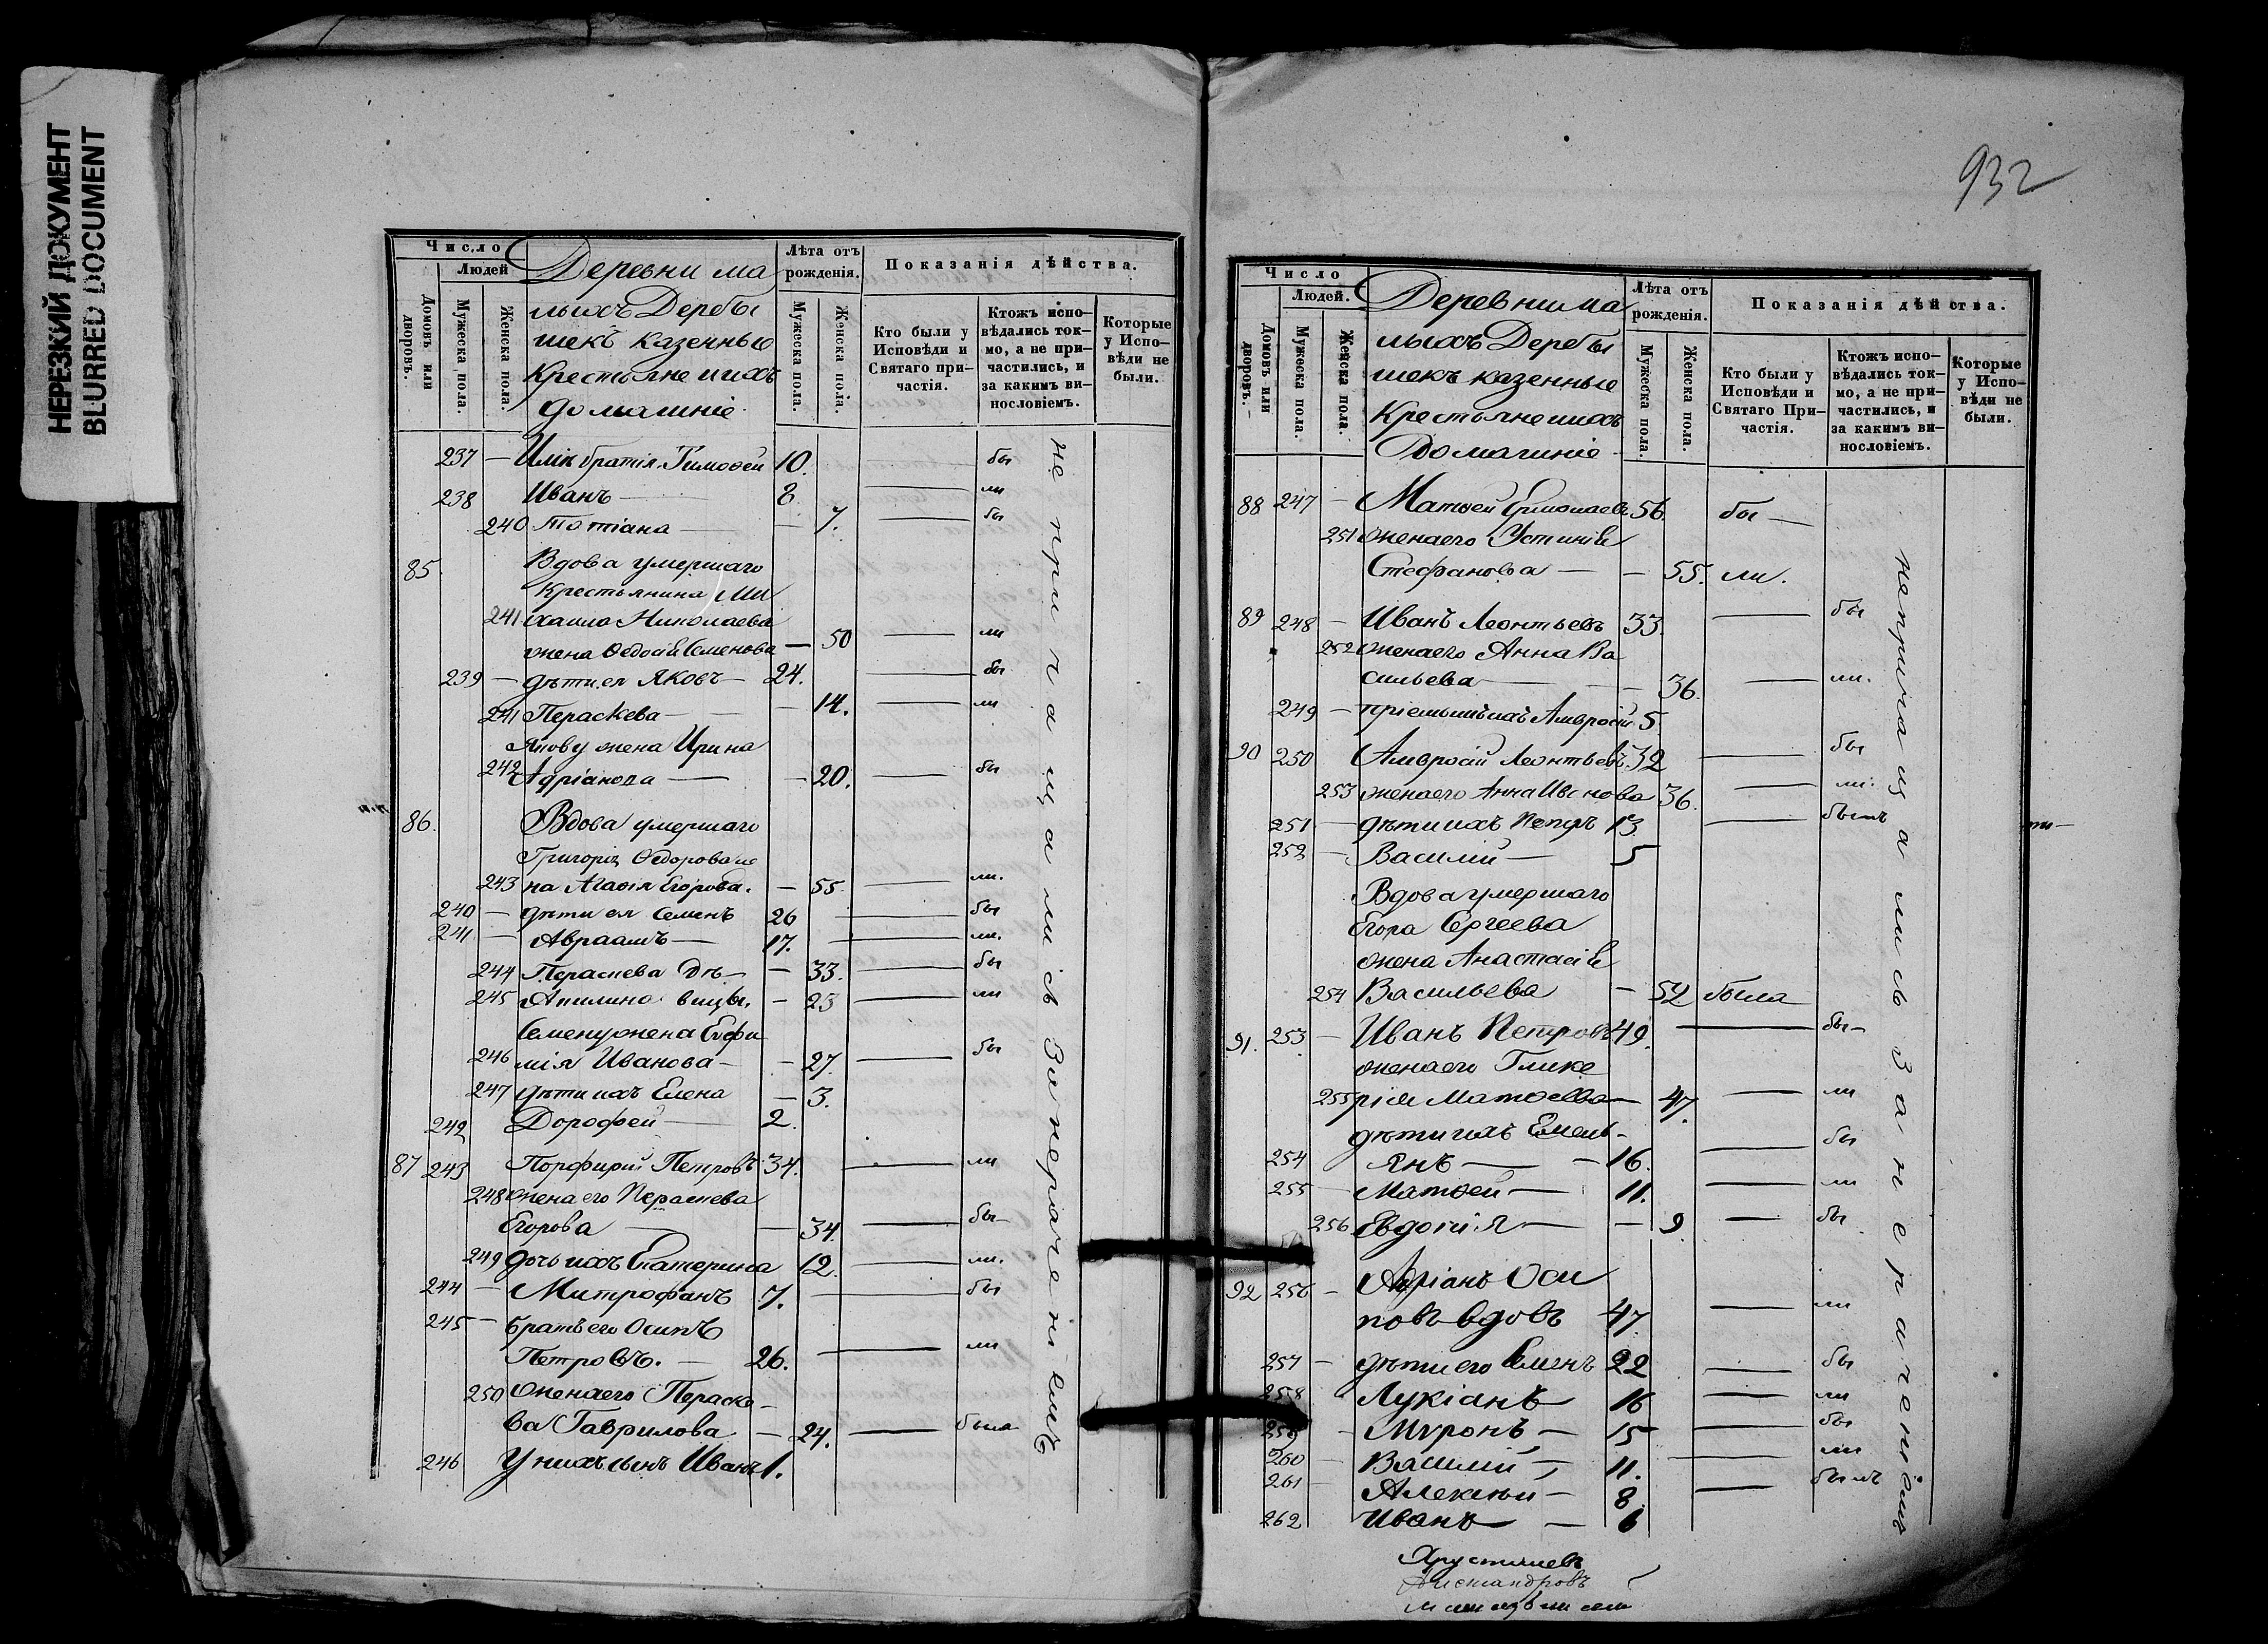 НЕРЕЗКИЙ ДОКУМЕНТ
BLURRED DOCUMENT
Число
Людей
Домовъ или дворовъ.
Мужеска пола.
Женска пола.
Деревни ма
лыхъ Дербы
шекъ казенные
Крестьяне и ихъ
домашніе
Лѣта отъ рожденія.
Мужеска пола.
Женска пола.
Показанія дѣйства.
Кто были у Исповѣди и Святаго при-частія.
Ктожъ испо-вѣдались ток-мо, а не при-частились, и за какимъ ви-нословіемъ.
Которые у Испо-вѣди не были.
237 — братія Тимофей 10. — бы
238 Иванъ — 8 — ли
240 Татіана — — 7. — бы
85. Вдова умершаго
Крестьянина Ми
241 хаила Николаева
жена Ѳедосія Семенова — 50 — ли
239 — дѣти ея Яковъ — 24. — бы
241 Пераскева — — 14. — ли
Якову жена Ирина
242 Адріанова — — 20. — бы
86. Вдова умершаго
Григорія Ѳедорова же
243 на Агафія Егорова. — 55. — ли.
240 — дѣти ея Семенъ 26 — бы
241 — Авраамъ — 17. — ли.
244 Пераскева дѣ- — 33. — бы
245 Акилина вицы. — 23 — ли
Семену жена Евфи
246 мія Иванова — — 27. — бы
247 дѣти ихъ Елена — 3.
242 Дорофей — 2.
87 243 Порфирий Петровъ 34. — ли
248 жена его Пераскева
Егорова — — 34. — бы
249 дочь ихъ Екатерина 12. — ли.
244 — Митрофанъ 7. — бы
245 — братъ его Осипъ
Петровъ. — 26. — ли
250 жена его Пераске-
ва Гаврилова — 24. — была
246 У нихъ сынъ Иванъ 1.
не причащались за нераченіемъ
932
Число
Людей.
Домовъ или дворовъ.
Мужеска пола.
Женска пола.
Деревни ма
лыхъ Дербы
шекъ казенные
Крестьяне и ихъ
Домашніе
Лѣта отъ рожденія.
Мужеска пола.
Женска пола.
Показанія дѣйства.
Кто были у Исповѣди и Святаго При-частія.
Ктожъ испо-вѣдались ток-мо, а не при-частились, и за какимъ ви-нословіемъ.
Которые у Испо-вѣди не были.
88 247 — Матвей Ермолаевъ 56. бы —
251 жена его Устинія
Стефанова — — 55. ли.
89 248 — Иванъ Леонтьевъ 33. — бы
252 жена его Анна Ва
сильева — — 36. — ли.
249 — пріемышъ ихъ Амвросій 5.
90 250 Амвросій Леонтьевъ 32 — бы
253 жена его Анна Иванова 36. — ли.
251 — дѣти ихъ Петръ 13 — былъ
252 — Василій — 5
Вдова умершаго
Егора Сергеева
жена Анастасія
254 Васильева — 52 была
91. 253 — Иванъ Петровъ 49. — бы-
жена его Глике
255 рія Матвеева — 47. — ли
дѣти ихъ Емель-
254 янъ — — 16. — бы
255 — Матвей — 11. — ли
256 Евдокія — — 9. — бы
92 256 — Адріанъ Оси
повъ вдовъ 47. — ли
257 — дѣти его Семенъ 22 — бы
258 Лукіанъ 16 — ли
259 — Миронъ — 15 — бы
260 — Василій — 11. — ли
261 — Алексѣй — 8. — былъ
262 Иванъ — 6
не причащались за нераченіемъ